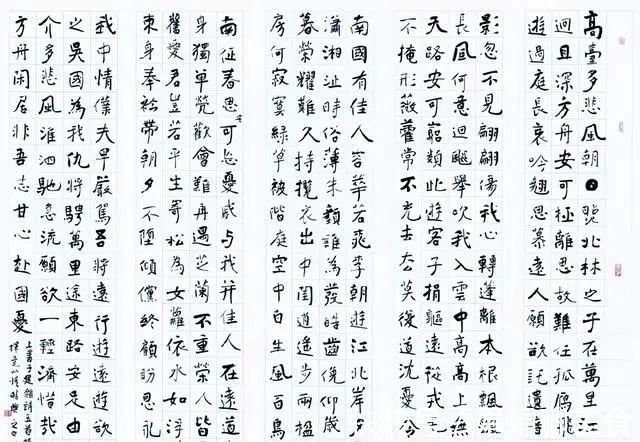 高臺多悲風朝日照北林之子在萬里江
迥且深方舟安可極離思故難任孤鴈飛
遊過庭長哀吟翹思慕遠人願欲託遺音
影忽不見翩翩傷我心轉蓬離本根飄颻
長風何意迴飇舉吹我入雲中高高上無
天路安可窮類此遊客子捐軀遠從戎毛
不掩形薇藿常不充去去莫復道沈憂令
南國有佳人容華若桃李朝遊江北岸夕
瀟湘沚時俗薄朱顏誰為發皓齒俛仰歲
暮榮耀難久持攬衣出中閨逍遙步兩楹
房何寂寞綠草被階庭空中自生風百鳥
南征春思可忘憂戚與我并佳人在遠道
身獨單煢歡會難再遇芝蘭不重榮人皆
舊愛君豈若平生寄松為女蘿依水如浮
束身奉衿帶朝夕不墮傾儻終顧盼恩永
我中情僕夫早嚴駕吾將遠行遊遠遊欲
之吳國為我仇將騁萬里途東路安足由
介多悲風淮泗馳急流願欲一輕濟惜哉
方舟閑居非吾志甘心赴國憂
上書子建雜詩五首